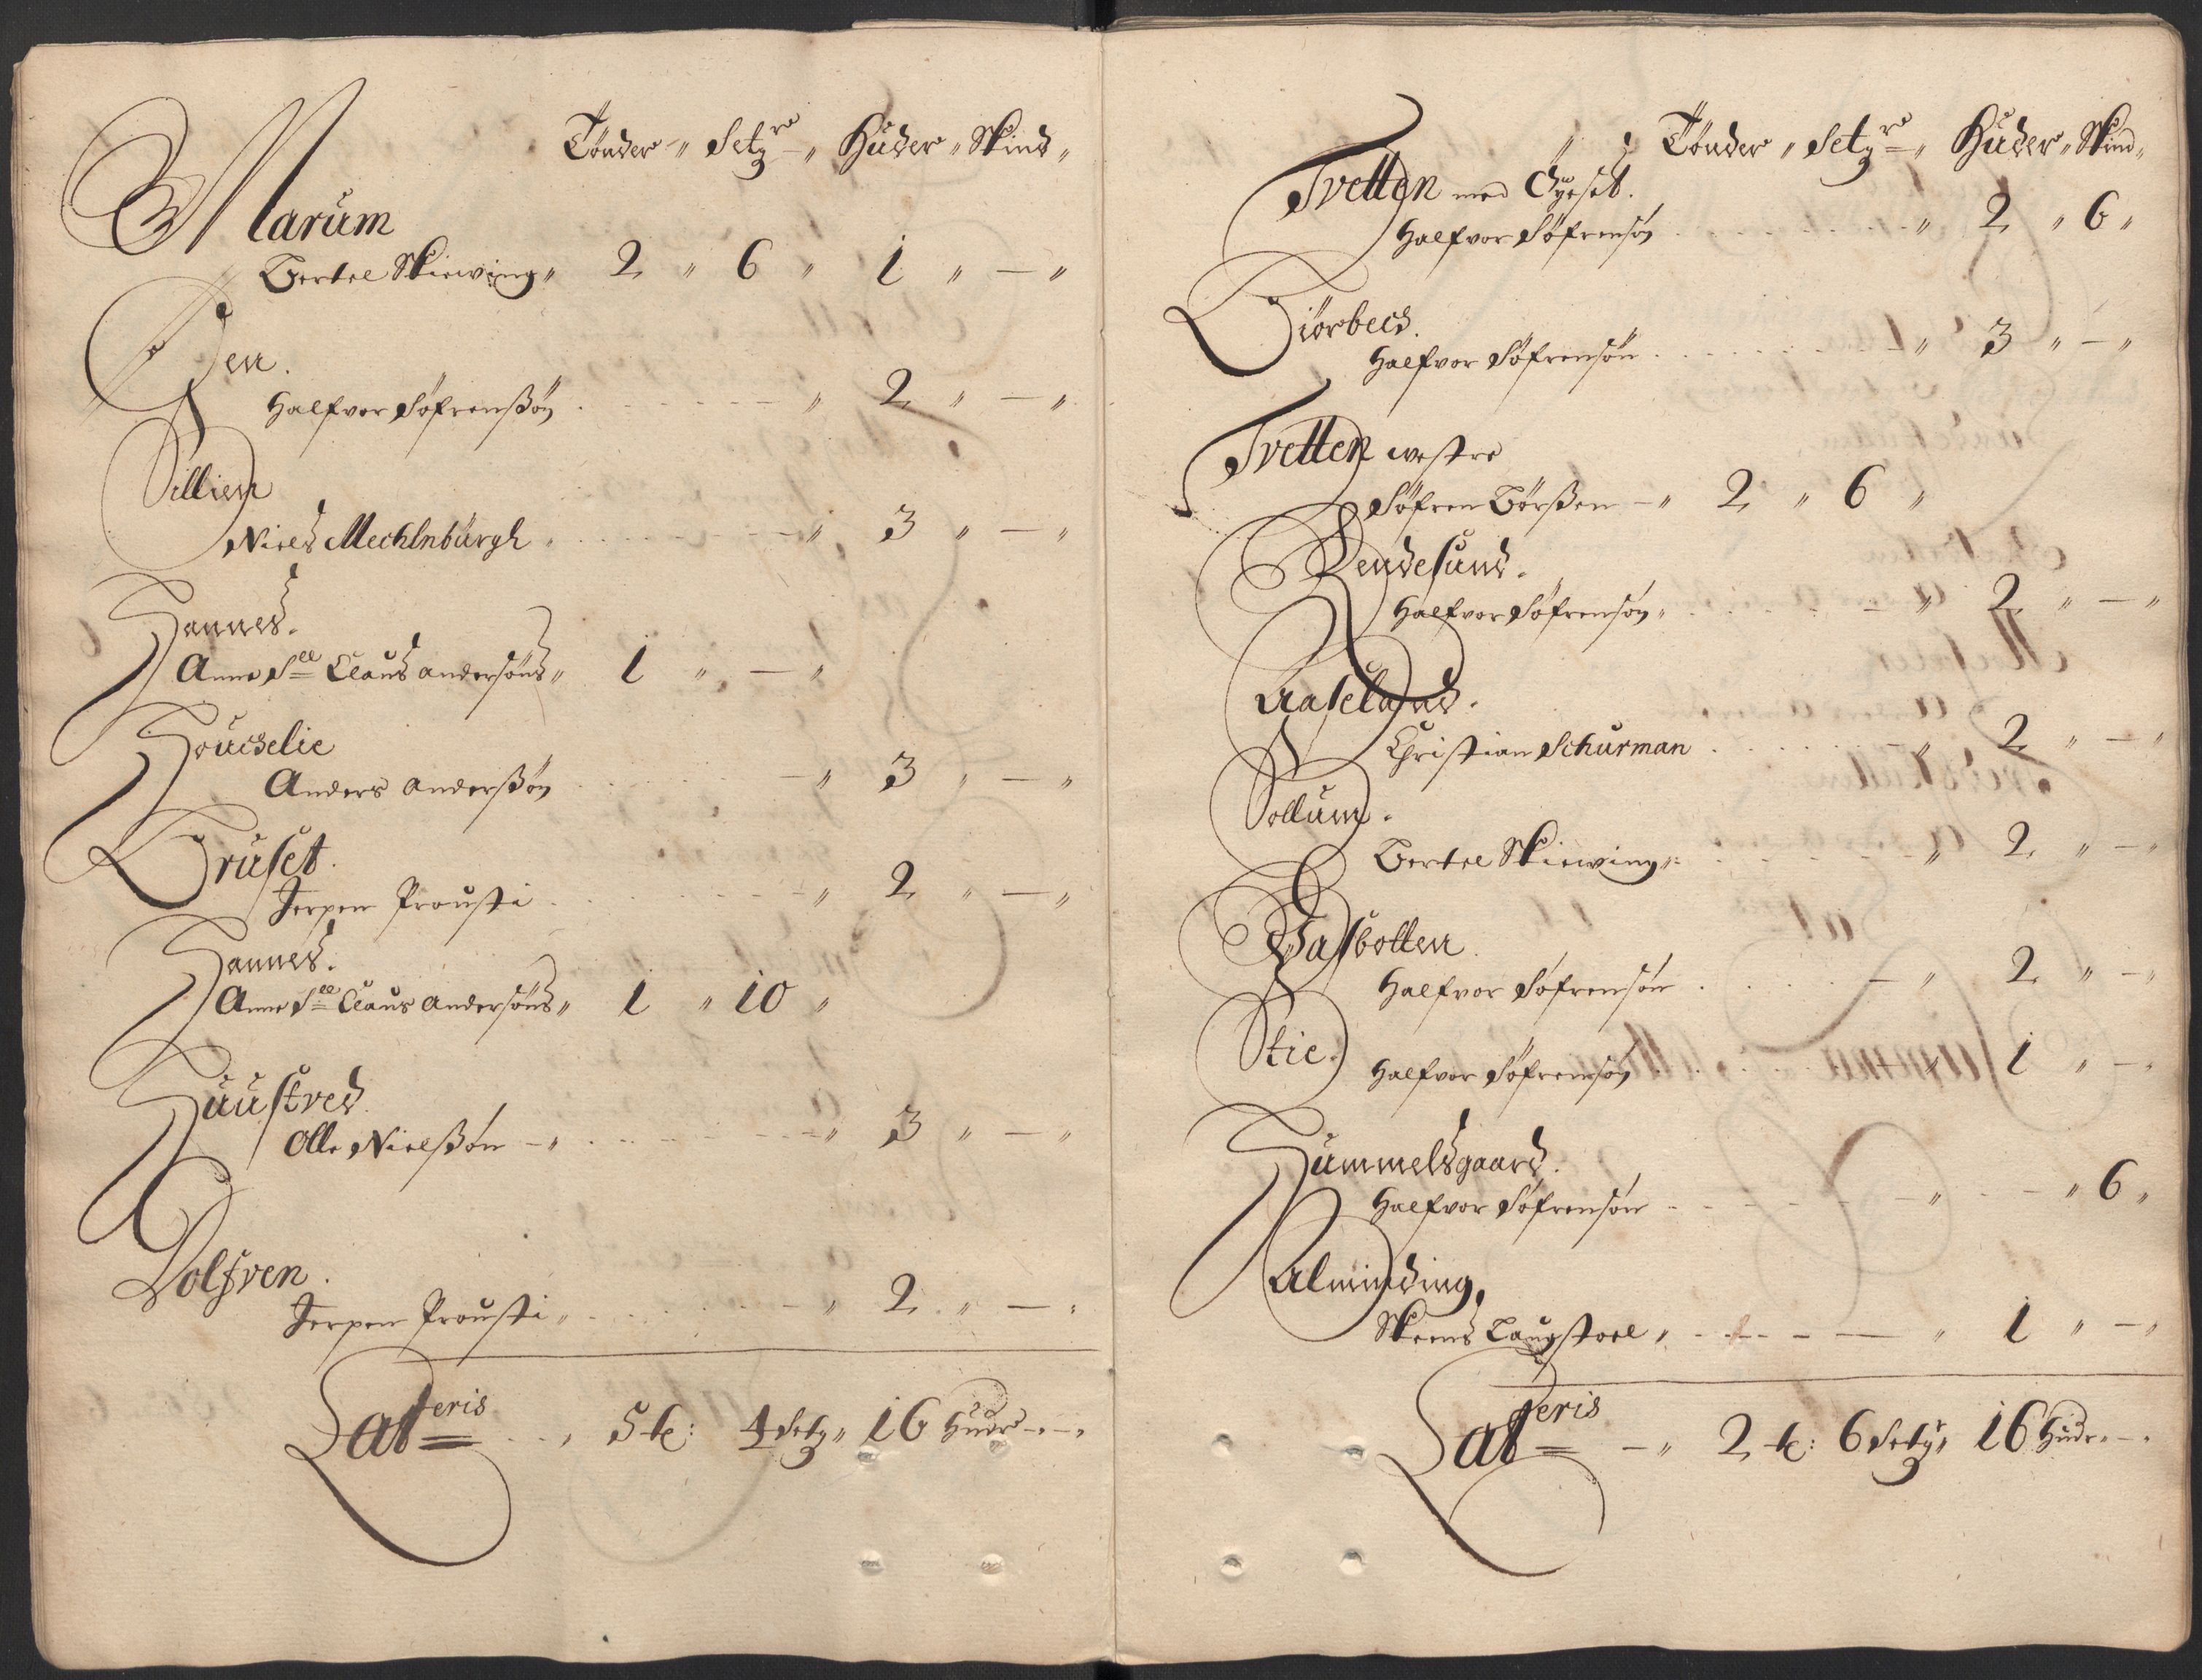 Tønder " Setgre " Huder " Skind "
Marum
Bertel Skiewing " 2 " 6 " 1 " — "
Jen.
Halfvor Søfrenßøn . . . " 2 " — "
Sillien
Niels Mechlnburgh . . . " 3 " — "
Hannes.
Anne Sell Claus Andersøns " 1 " — "
Houcselie
Anders Anderßøn . . . — " 3 " — "
Bruset.
Jerpen Prousti . . . " 2 " — "
Hannes.
Anne Sell Claus Andersøns " 1 " 10 "
Huustved
Olle Nielßøn — " . . . " 3 " — "
Dolfven.
Jerpen Prousti " . . . " 2 " — "
Lateris . . , 5 te: 4 Setg " 16 Hudr — "
Tønder " Setgre " Huder " Skind "
Tvetten med
Halfvor Søfrensøn . . . " 2 " 6 "
Biørbech.
Halfvor Søfrensøn . . . " 3 " — "
Tvetten westre
Søfren Børßen — " 2 " 6 "
Rendesund.
Halfvor Søfrensøn " . . . " 2 " — "
Aaseland.
Christian Schurman . . . " 2 " — "
Sollum.
Bertel Skiewing " . . . " 2 " — "
Wasbotten
Halfvor Søfrensøn . . . — " 2 " — "
Stie.
Halfvor Søfrensøn . . . 1 " — "
Hummelsgaard.
Halfvor Søfrensøn . . . " — " 6 "
Alminding,
Skeens Laugstoel " . . . — " 1 " — "
Lateris — " 2 te: 6 Setg " 16 Hudr — "